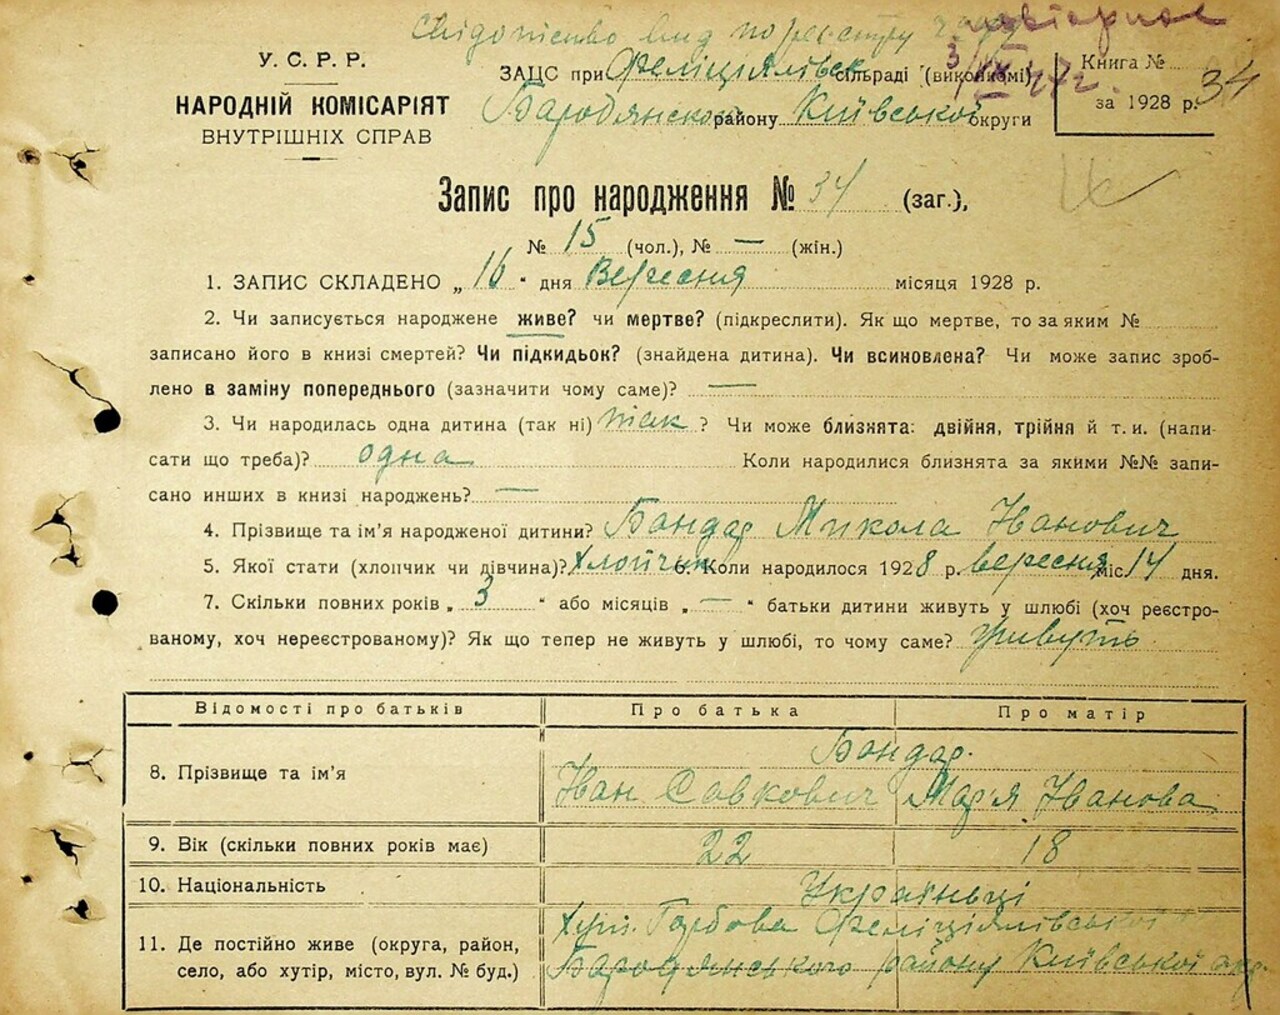 Свідоцтво вид по реєстру
повторное
У. С. Р. Р.
НАРОДНІЙ КОМІСАРІЯТ
ВНУТРІШНІХ СПРАВ
ЗАЦС при Феліціялівск сільраді (виконкомі)
Бародянском району Київської округи
Книга №
за 1928 р. 34
Запис про народження № 34 (заг.),
№ 15 (чол.), № — (жін.)
1. ЗАПИС СКЛАДЕНО „ 16 “ дня Вересня місяця 1928 р.
2. Чи записується народжене живе? чи мертве? (підкреслити). Як що мертве, то за яким №
записано його в книзі смертей? Чи підкидьок? (знайдена дитина). Чи всиновлена? Чи може запис зроб-
лено в заміну попереднього (зазначити чому саме)? —
3. Чи народилась одна дитина (так ні) так ? Чи може близнята: двійня, трійня й т. и. (напи-
сати що треба)? одна Коли народилися близнята за якими №№ запи-
сано инших в книзі народжень? —
4. Прізвище та ім’я народженої дитини? Бондар Микола Іванович
5. Якої стати (хлопчик чи дівчина)? Хлопчик 6. Коли народилося 1928 р. вересня міс 14 дня.
7. Скільки повних років „ 3 “ або місяців „ — “ батьки дитини живуть у шлюбі (хоч реєстро-
ваному, хоч нереєстрованому)? Як що тепер не живуть у шлюбі, то чому саме? живуть
Відомості про батьків Про батька Про матір
8. Прізвище та ім’я
Бондар.
Іван Савкович Мар'я Іванова
9. Вік (скільки повних років має) 22 18
10. Національність Україньці
11. Де постійно живе (округа, район,
село, або хутір, місто, вул. № буд.)
Хут. Гарбова Феліціялівської
Бародянського району Київської окр.